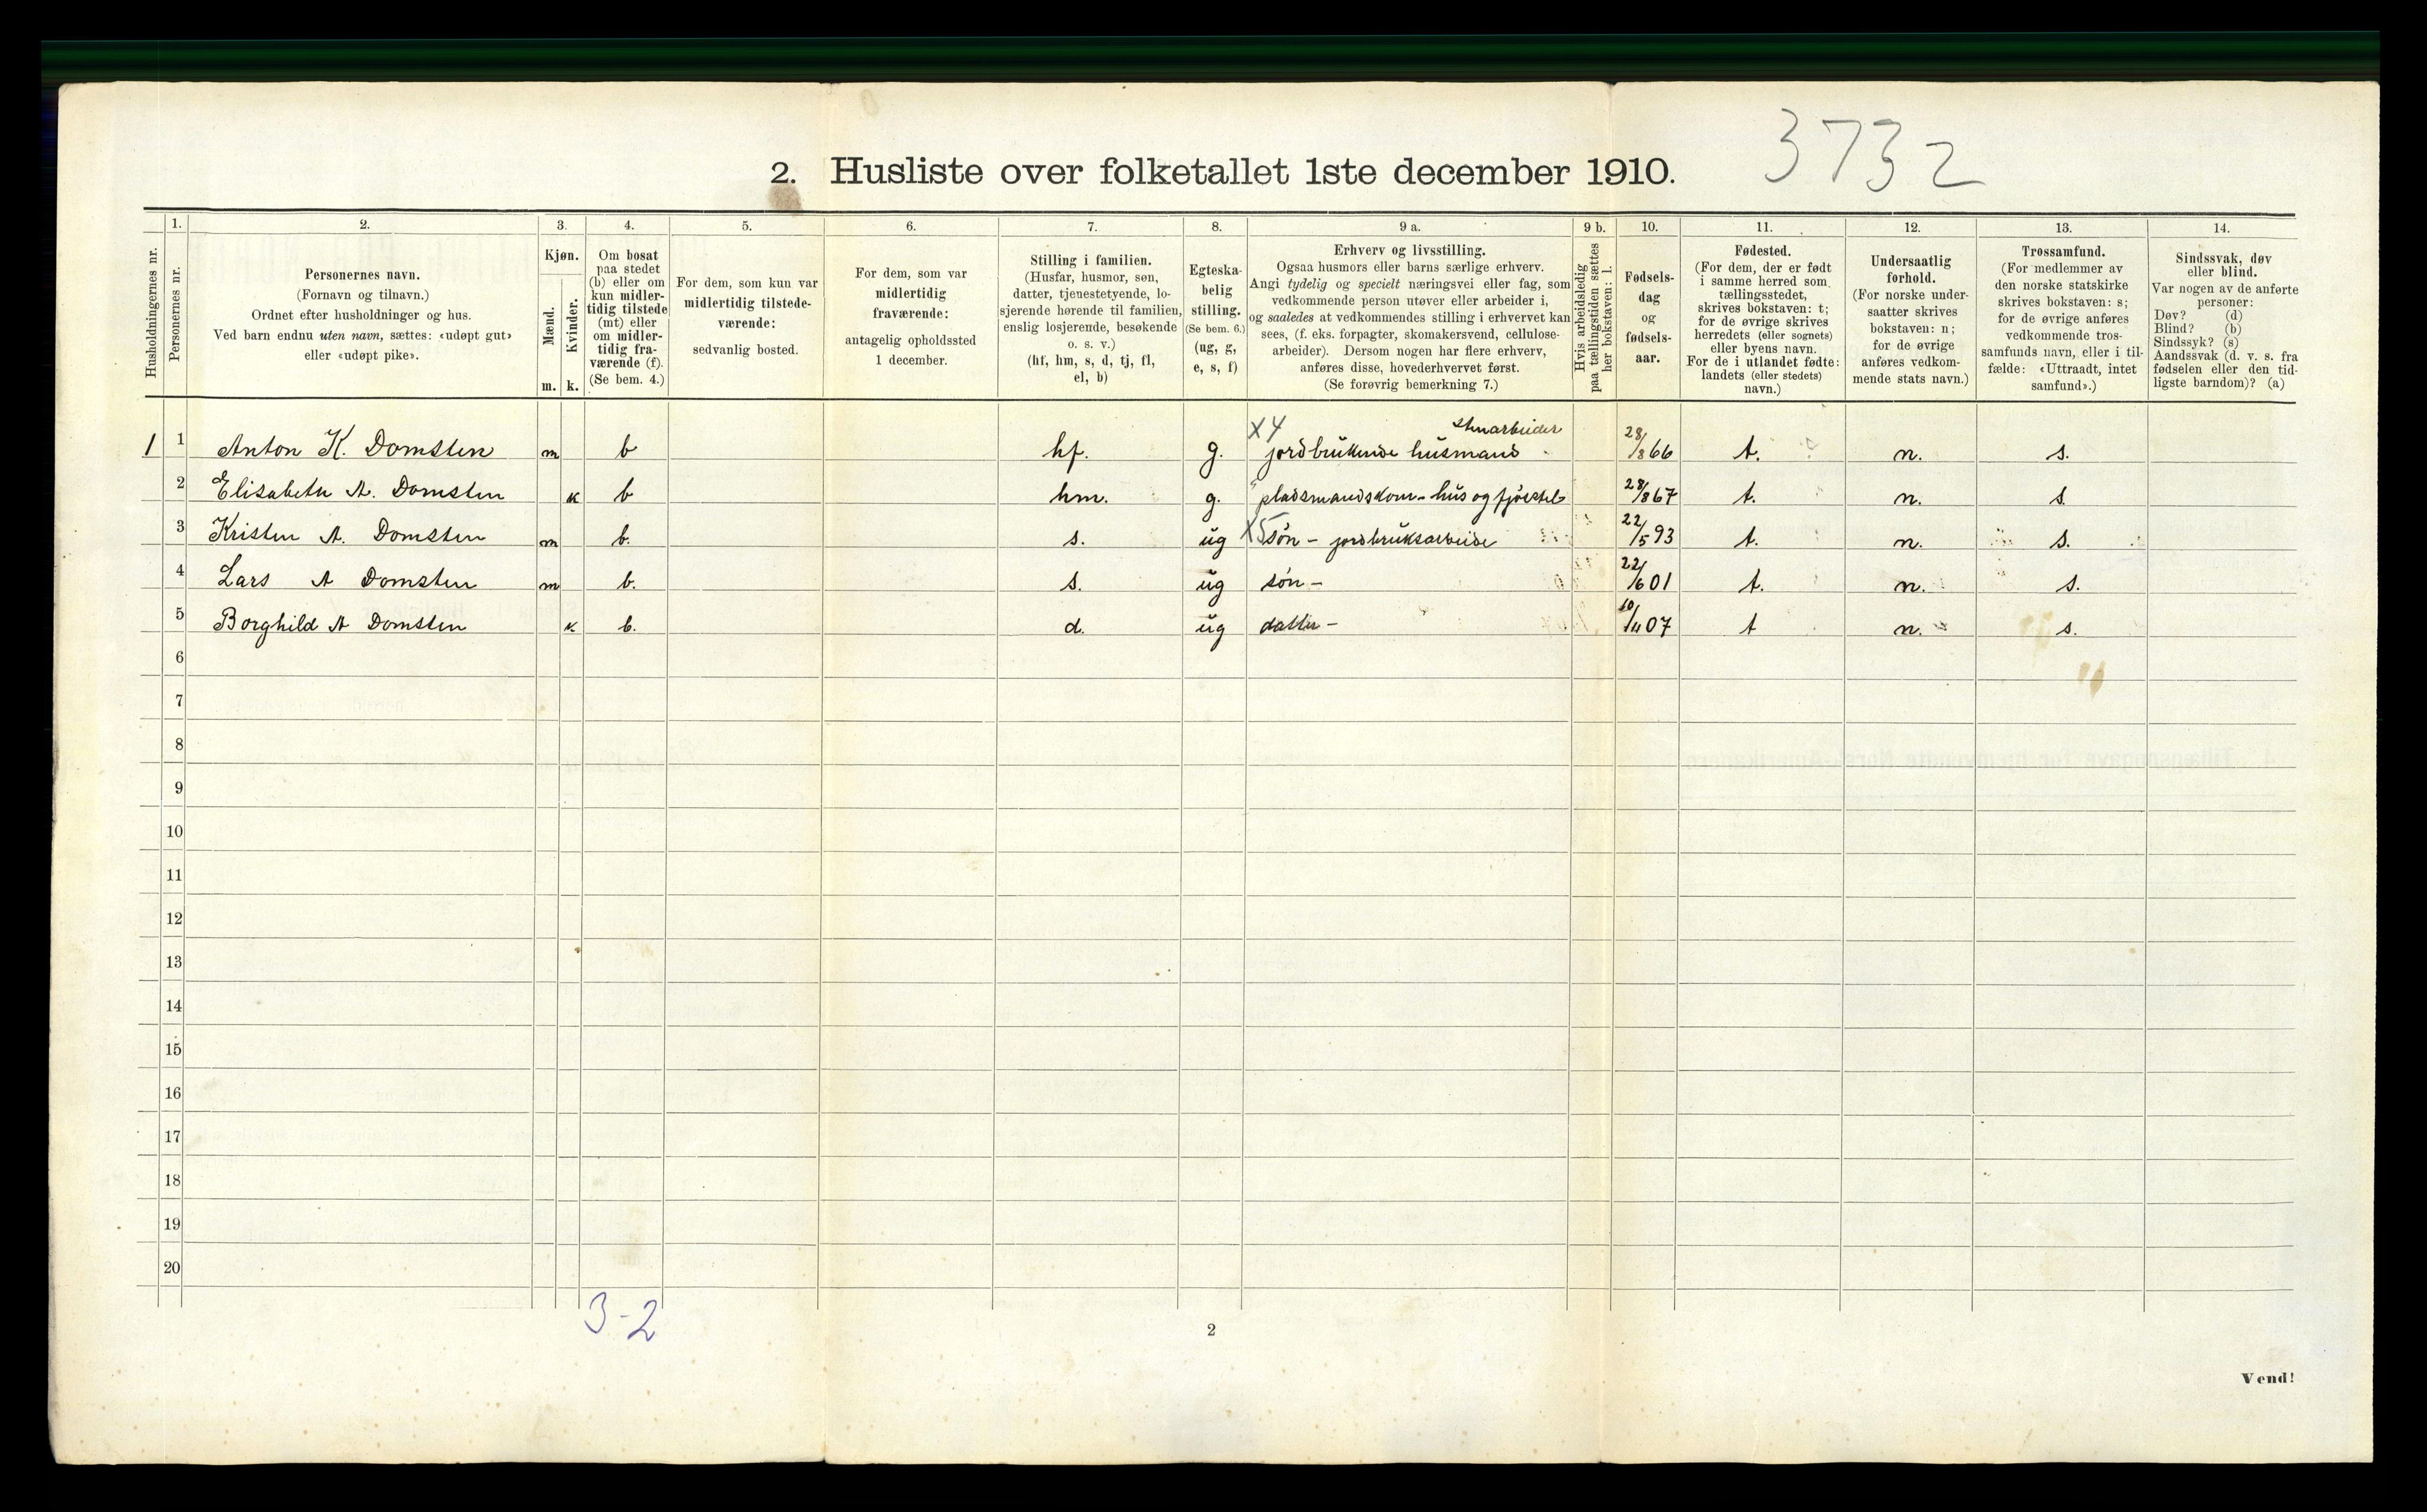 3732
2. Husliste over folketallet 1ste december 1910.
Husholdningernes nr.
1.
Personernes nr.
2.
Personernes navn.
(Fornavn og tilnavn.)
Ordnet efter husholdninger og hus.
Ved barn endnu uten navn, sættes: «udøpt gut»
eller «udøpt pike».
3.
Kjøn.
Mænd.
m.
Kvinder.
k.
4.
Om bosat
paa stedet
(b) eller om
kun midler-
tidig tilstede
(mt) eller
om midler-
tidig fra-
værende (f).
(Se bem. 4.)
5.
For dem, som kun var
midlertidig tilstede-
værende:
sedvanlig bosted.
6.
For dem, som var
midlertidig
fraværende:
antagelig opholdssted
1 december.
7.
Stilling i familien.
(Husfar, husmor, søn,
datter, tjenestetyende, lo-
sjerende hørende til familien,
enslig losjerende, besøkende
o. s. v.)
(hf, hm, s, d, tj, fl,
el, b)
8.
Egteska-
belig
stilling.
(Se bem. 6.)
(ug, g,
e, s, f)
9 a.
Erhverv og livsstilling.
Ogsaa husmors eller barns særlige erhverv.
Angi tydelig og specielt næringsvei eller fag, som
vedkommende person utøver eller arbeider i,
og saaledes at vedkommendes stilling i erhvervet kan
sees, (f. eks. forpagter, skomakersvend, cellulose-
arbeider). Dersom nogen har flere erhverv,
anføres disse, hovederhvervet først.
(Se forøvrig bemerkning 7.)
9 b.
Hvis arbeidsledig
paa tællingstiden sættes
her bokstaven: l.
10.
Fødsels-
dag
og
fødsels-
aar.
11.
Fødested.
(For dem, der er født
i samme herred som
tællingsstedet,
skrives bokstaven: t;
for de øvrige skrives
herredets (eller sognets)
eller byens navn.
For de i utlandet fødte:
landets (eller stedets)
navn.)
12.
Undersaatlig
forhold.
(For norske under-
saatter skrives
bokstaven: n;
for de øvrige
anføres vedkom-
mende stats navn.)
13.
Trossamfund.
(For medlemmer av
den norske statskirke
skrives bokstaven: s;
for de øvrige anføres
vedkommende tros-
samfunds navn, eller i til-
fælde: «Uttraadt, intet
samfund».)
14.
Sindssvak, døv
eller blind.
Var nogen av de anførte
personer:
Døv? (d)
Blind? (b)
Sindssyk? (s)
Aandssvak (d. v. s. fra
fødselen eller den tid-
ligste barndom)? (a)
X4 stenarbeider
1 1 Anton K. Domsten m b hf. g. jordbrukende husmand 28/8 66 t. n. s.
2 Elisabeth A. Domsten k b hm. g. pladsmandskom - hus og fjösstel 28/8 67 t. n. s.
3 Kristen A. Domsten m b. s. ug X5 søn - jordbruksarbeide 22/5 93 t. n. s.
4 Lars A Domsten m b. s. ug søn - 22/6 01 t. n. s.
5 Borghild A Domsten k b. d. ug datter - 10/11 07 t n. s.
6
7
8
9
10
11
12
13
14
15
16
17
18
19
20
3-2
2
Vend!